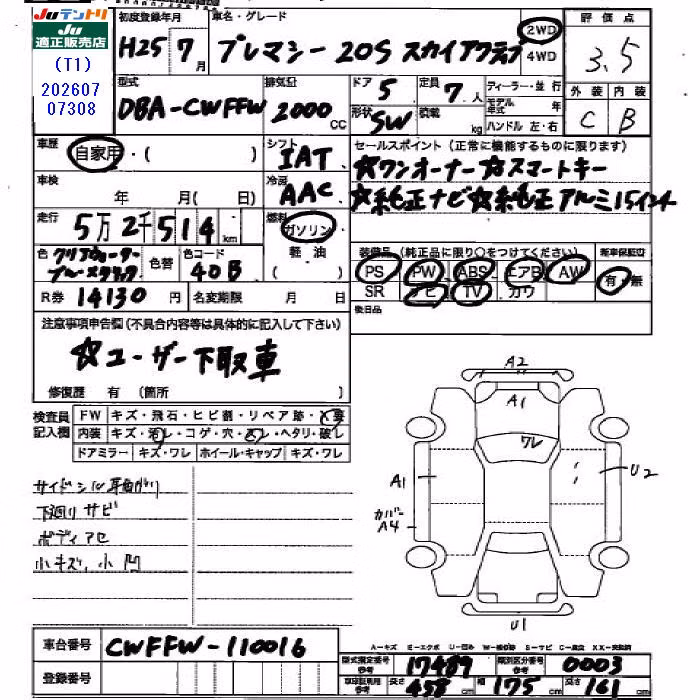 Juテントリ
Ju
適正販売店
(T1)
202607
07308
初度登録年月
H25 7月
車名・グレード
プレマシー 20S スカイアクティブ
2WD
4WD
評価点
3.5
型式
DBA-CWFFW
排気量
2000 CC
ドア 5
形状 SW
定員 7人
積載 kg
ディーラー・並行
モデル年式 年
ハンドル 左・右
外装 内装
C B
車歴
自家用・( )
シフト IAT
セールスポイント (正常に機能するものに限ります)
☆ワンオーナー ☆スマートキー
☆純正ナビ ☆純正アルミ15インチ
車検 年 月( 日)
冷房 AAC
走行 5万2千514km
燃料 ガソリン
軽油
( )
色 クリアウォーターブルーメタリック
色替
色コード 40B
装備品 (純正品に限り○をつけてください)
新車保証書
PS PW ABS エアB AW
有・無
SR ナビ TV カワ
R券 14130円 名変期限 月 日
後日品
注意事項申告欄(不具合内容等は具体的に記入して下さい)
☆ユーザー下取車
修復歴 有 (箇所 )
検査員記入欄
FW キズ・飛石・ヒビ割・リペア跡・X要
内装 キズ・汚レ・コゲ・穴・スレ・ヘタリ・破レ
ドアミラー キズ・ワレ ホイール・キャップ キズ・ワレ
サイドシル耳曲がり
下廻りサビ
ボディアセ
小キズ,小凹
A2
A1
ワレ
A1
U2
カバー
A4
U1
車台番号 CWFFW-110016
登録番号
A-キズ E-エクボ U-凹み W-補修跡 S-サビ C-腐食 XX-交換済
型式指定番号 参考 17489 類別区分番号 参考 0003
参考 長さ 458cm 幅 175cm 高さ 161cm